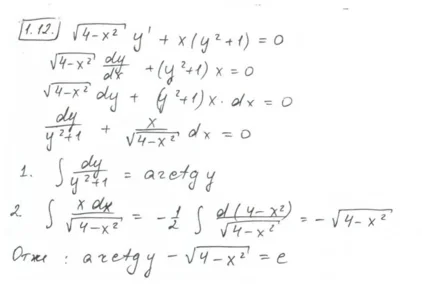 1.12. √(4-x²) y' + x(y²+1) = 0
√(4-x²) dy/dx + (y²+1)x = 0
√(4-x²) dy + (y²+1)x·dx = 0
dy/(y²+1) + x/√(4-x²) dx = 0
1. ∫ dy/(y²+1) = arctg y
2 ∫ x dx/√(4-x²) = -1/2 ∫ d(4-x²)/√(4-x²) = -√(4-x²)
Отв: arctg y - √(4-x²) = c